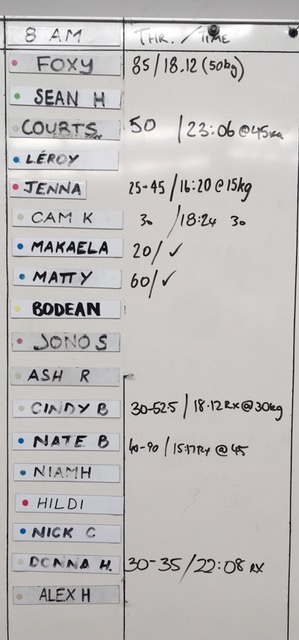 8 AM THR. / TIME
FOXY 85/18.12 (50kg)
SEAN H
COURTS 50 /23:06 @45KG
LÉROY
JENNA 25-45/16:20 @15kg
CAM K 30 /18:24 30
MAKAELA 20/✓
MATTY 60/✓
BODEAN
JONO S
ASH R
CINDY B 30-52.5 / 18.12 RX @30kg
NATE B 40-90 / 15:17 RX @ 45
NIAMH
HILDI
NICK C
DONNA H. 30-35/22:08 RX
ALEX H